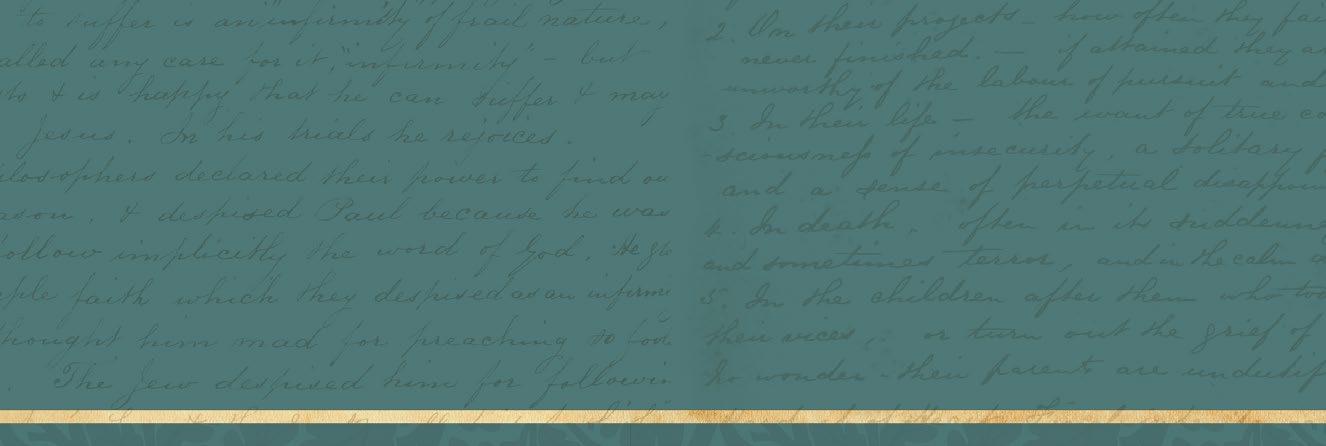 to suffer is an "infirmity" of frail nature,
alled any care for it, "infirmity" - but
ts & is happy that he can suffer & may
Jesus. In his trials he rejoices.
ilosophers declared their power to find ou
ason, & despised Paul because he was
ollow implicitly the word of God. He
ple faith which they despised as an infirmi
hought him mad for preaching so foo
. The Jew despised him for followin
2. On their projects - how often they fai
never finished. - if attained they ar
unworthy of the labour of pursuit and
3. In their life - the want of true co
-sciousness of insecurity, a solitary
and a sense of perpetual disappoin
4. In death, often in its suddenne
and sometimes terror, and in the calm
5. In the children after them who
their vices, or turn out the grief of
No wonder - their parents are undutif